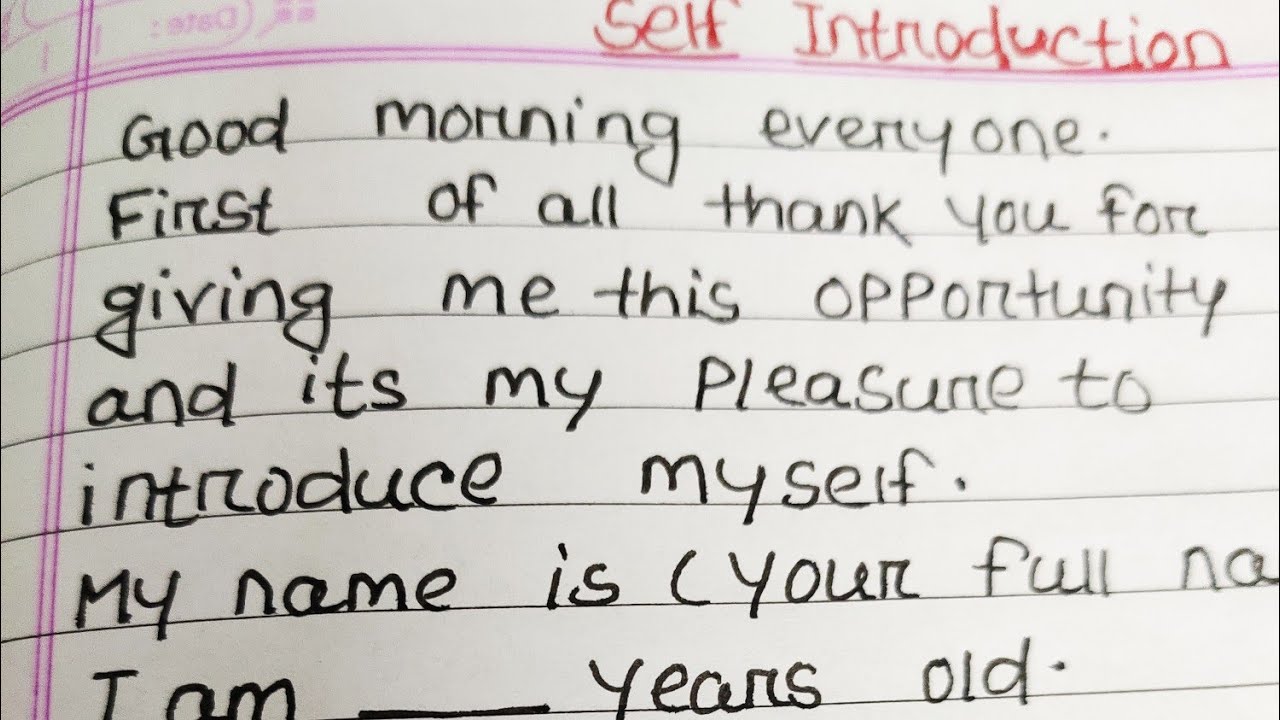 Self Introduction
Good morning everyone.
First of all thank you for
giving me this opportunity
and its my pleasure to
introduce myself.
My name is (your full na
I am ___ years old.